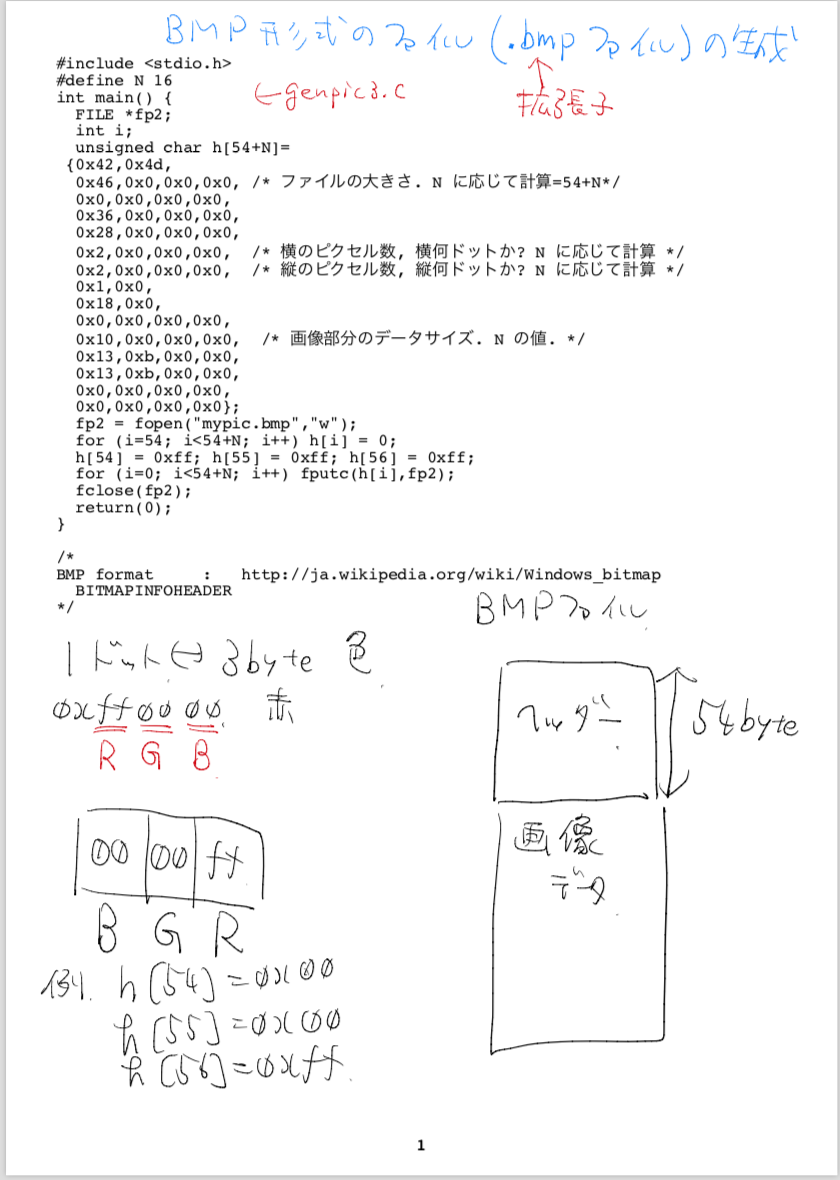 BMP形式のファイル(.bmpファイル)の生成
#include <stdio.h>
#define N 16
int main() {
←genpic3.c
拡張子
FILE *fp2;
int i;
unsigned char h[54+N]=
{0x42,0x4d,
0x46,0x0,0x0,0x0, /* ファイルの大きさ. N に応じて計算=54+N*/
0x0,0x0,0x0,0x0,
0x36,0x0,0x0,0x0,
0x28,0x0,0x0,0x0,
0x2,0x0,0x0,0x0, /* 横のピクセル数, 横何ドットか? N に応じて計算 */
0x2,0x0,0x0,0x0, /* 縦のピクセル数, 縦何ドットか? N に応じて計算 */
0x1,0x0,
0x18,0x0,
0x0,0x0,0x0,0x0,
0x10,0x0,0x0,0x0, /* 画像部分のデータサイズ. N の値. */
0x13,0xb,0x0,0x0,
0x13,0xb,0x0,0x0,
0x0,0x0,0x0,0x0,
0x0,0x0,0x0,0x0};
fp2 = fopen("mypic.bmp","w");
for (i=54; i<54+N; i++) h[i] = 0;
h[54] = 0xff; h[55] = 0xff; h[56] = 0xff;
for (i=0; i<54+N; i++) fputc(h[i],fp2);
fclose(fp2);
return(0);
}
/*
BMP format : http://ja.wikipedia.org/wiki/Windows_bitmap
BITMAPINFOHEADER
*/
1ドット↔3byte 色
0xff00 00 赤
R G B
00 00 ff
B G R
例. h[54]=0x00
h[55]=0x00
h[56]=0xff.
BMPファイル
ヘッダー
54byte
画像
データ
1